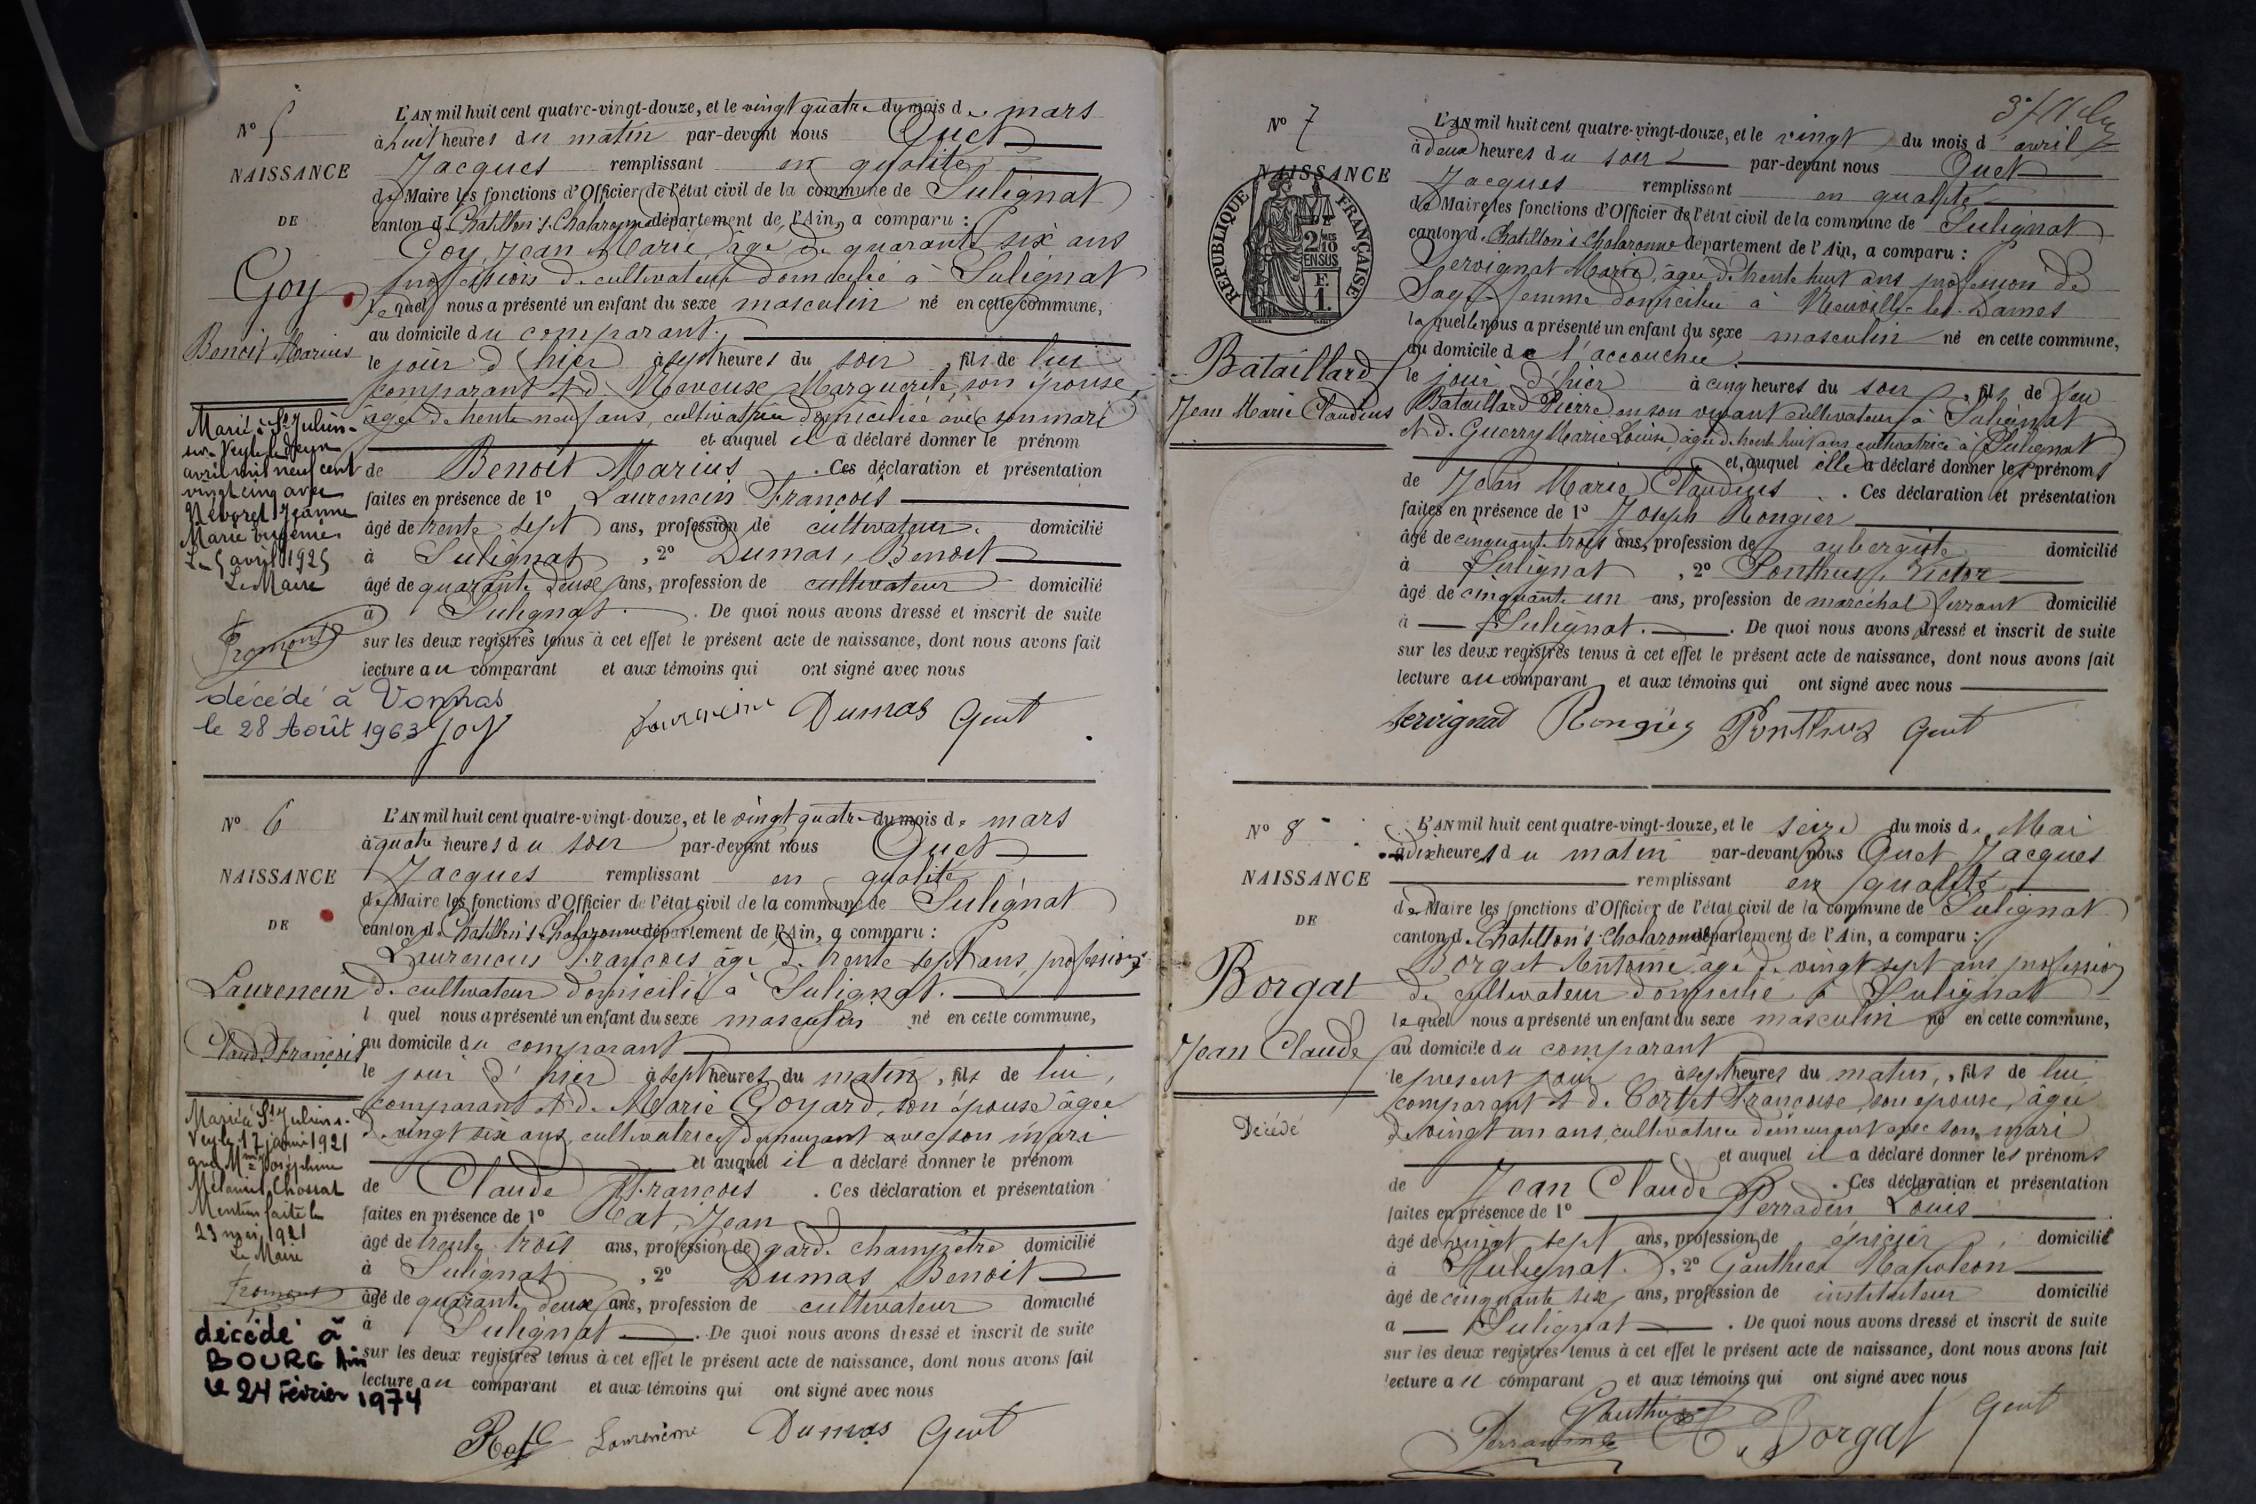 N° 5
NAISSANCE
DE
Goy
Benoit Marius
Marié à St Julien-
sur-Veyle le deux
avril mil neuf cent
vingt cinq avec
Nevoret Jeanne
Marie Eugénie
Le 5 avril 1925
Le Maire
Fromont
décédé à Vonnas
le 28 Août 1963
L'AN mil huit cent quatre-vingt-douze, et le vingt quatre du mois de mars
à huit heures du matin par-devant nous Quet
Jacques remplissant en qualité
de Maire les fonctions d'Officier de l'état civil de la commune de Sulignat
canton de Chatillon s. Chalaronne département de l'Ain, a comparu :
Goy, Jean Marie, âgé de quarante six ans
profession de cultivateur domicilié à Sulignat
lequel nous a présenté un enfant du sexe masculin né en cette commune,
au domicile du comparant.
le jour d'hier à sept heures du soir, fils de lui
comparant et de Neveux Marguerite, son épouse,
âgée de trente neuf ans, cultivatrice domiciliée avec son mari
et auquel il a déclaré donner le prénom
de Benoit Marius. Ces déclaration et présentation
faites en présence de 1° Laurencin François
âgé de trente sept ans, profession de cultivateur. domicilié
à Sulignat, 2° Dumas, Benoit
âgé de quarante deux ans, profession de cultivateur domicilié
à Sulignat. De quoi nous avons dressé et inscrit de suite
sur les deux registres tenus à cet effet le présent acte de naissance, dont nous avons fait
lecture au comparant et aux témoins qui ont signé avec nous
Goy Dumas Quet
N° 6
NAISSANCE
DE
Laurencin
Claude François
Marié à St Julien s.
Veyle 17 1921
avec Joséphine
Mélanie Chossat
Mention faite le
23 1921
Le Maire
Fromont
décédé à
BOURG Ain
le 24 Février 1974
L'AN mil huit cent quatre-vingt-douze, et le vingt quatre du mois de mars
à quatre heures du soir par-devant nous Quet
Jacques remplissant en qualité
de Maire les fonctions d'Officier de l'état civil de la commune de Sulignat
canton de Chatillon s. Chalaronne département de l'Ain, a comparu :
Laurencin François âgé de trente sept ans, profession
de cultivateur domicilié à Sulignat.
l quel nous a présenté un enfant du sexe masculin né en cette commune,
au domicile du comparant
le jour d'hier à sept heures du matin, fils de lui,
comparant et de Marie Goyard, son épouse âgée
de vingt six ans, cultivatrice, demeurant avec son mari
et auquel il a déclaré donner le prénom
de Claude François. Ces déclaration et présentation
faites en présence de 1° Rat, Jean
âgé de trente trois ans, profession de garde champêtre domicilié
à Sulignat, 2° Dumas Benoit
âgé de quarante deux ans, profession de cultivateur domicilié
à Sulignat. De quoi nous avons dressé et inscrit de suite
sur les deux registres tenus à cet effet le présent acte de naissance, dont nous avons fait
lecture au comparant et aux témoins qui ont signé avec nous
Rat Dumas Quet
N° 7
NAISSANCE
RÉPUBLIQUE FRANÇAISE
2 MES
10
EN SUS
F.
1.
Bataillard
Jean Marie Claudius
L'AN mil huit cent quatre-vingt-douze, et le vingt du mois d'avril
à deux heures du soir par-devant nous Quet
Jacques remplissant en qualité
de Maire les fonctions d'Officier de l'état civil de la commune de Sulignat
canton de Chatillon s Chalaronne département de l'Ain, a comparu :
Servignat Marie, âgée de trente huit ans profession de
Sage-femme domiciliée à Neuville-les-Dames
laquelle nous a présenté un enfant du sexe masculin né en cette commune,
au domicile de l'accouchée.
le jour d'hier à cinq heures du soir, fils de feu
Bataillard Pierre en son vivant cultivateur à Sulignat
et de Guerry Marie Louise, âgée de trente huit ans, cultivatrice à Sulignat
et auquel elle a déclaré donner les prénoms
de Jean Marie Claudius. Ces déclaration et présentation
faites en présence de 1° Joseph Rongier
âgé de cinquante trois ans, profession de aubergiste domicilié
à Sulignat, 2° Ponthus, Victor
âgé de cinquante un ans, profession de maréchal ferrant domicilié
à Sulignat. De quoi nous avons dressé et inscrit de suite
sur les deux registres tenus à cet effet le présent acte de naissance, dont nous avons fait
lecture au comparant et aux témoins qui ont signé avec nous
Servignat Rongier Ponthus Quet
N° 8
NAISSANCE
DE
Borgat
Jean Claude
Décédé
L'AN mil huit cent quatre-vingt-douze, et le seize du mois de Mai
à dix heures du matin par-devant nous Quet Jacques
remplissant en qualité
de Maire les fonctions d'Officier de l'état civil de la commune de Sulignat
canton de Chatillon s. Chalaronne département de l'Ain, a comparu :
Borgat Antoine, âgé de vingt sept ans, profession
de cultivateur domicilié à Sulignat
lequel nous a présenté un enfant du sexe masculin né en cette commune,
au domicile du comparant
le présent jour à sept heures du matin, fils de lui,
comparant et de Françoise, son épouse, âgée
de vingt un ans, cultivatrice demeurant avec son mari
et auquel il a déclaré donner les prénoms
de Jean Claude. Ces déclaration et présentation
faites en présence de 1° Perradin Louis
âgé de vingt sept ans, profession de épicier, domicilié
à Sulignat, 2° Gauthier Napoléon
âgé de cinquante six ans, profession de instituteur domicilié
à Sulignat. De quoi nous avons dressé et inscrit de suite
sur les deux registres tenus à cet effet le présent acte de naissance, dont nous avons fait
lecture au comparant et aux témoins qui ont signé avec nous
Gauthier Borgat Quet